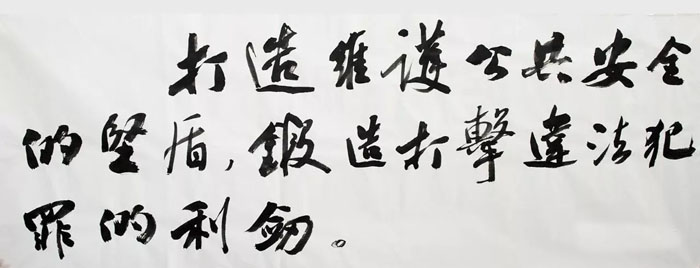 打造維護公共安全
的堅盾,鍛造打擊違法犯
罪的利劒。